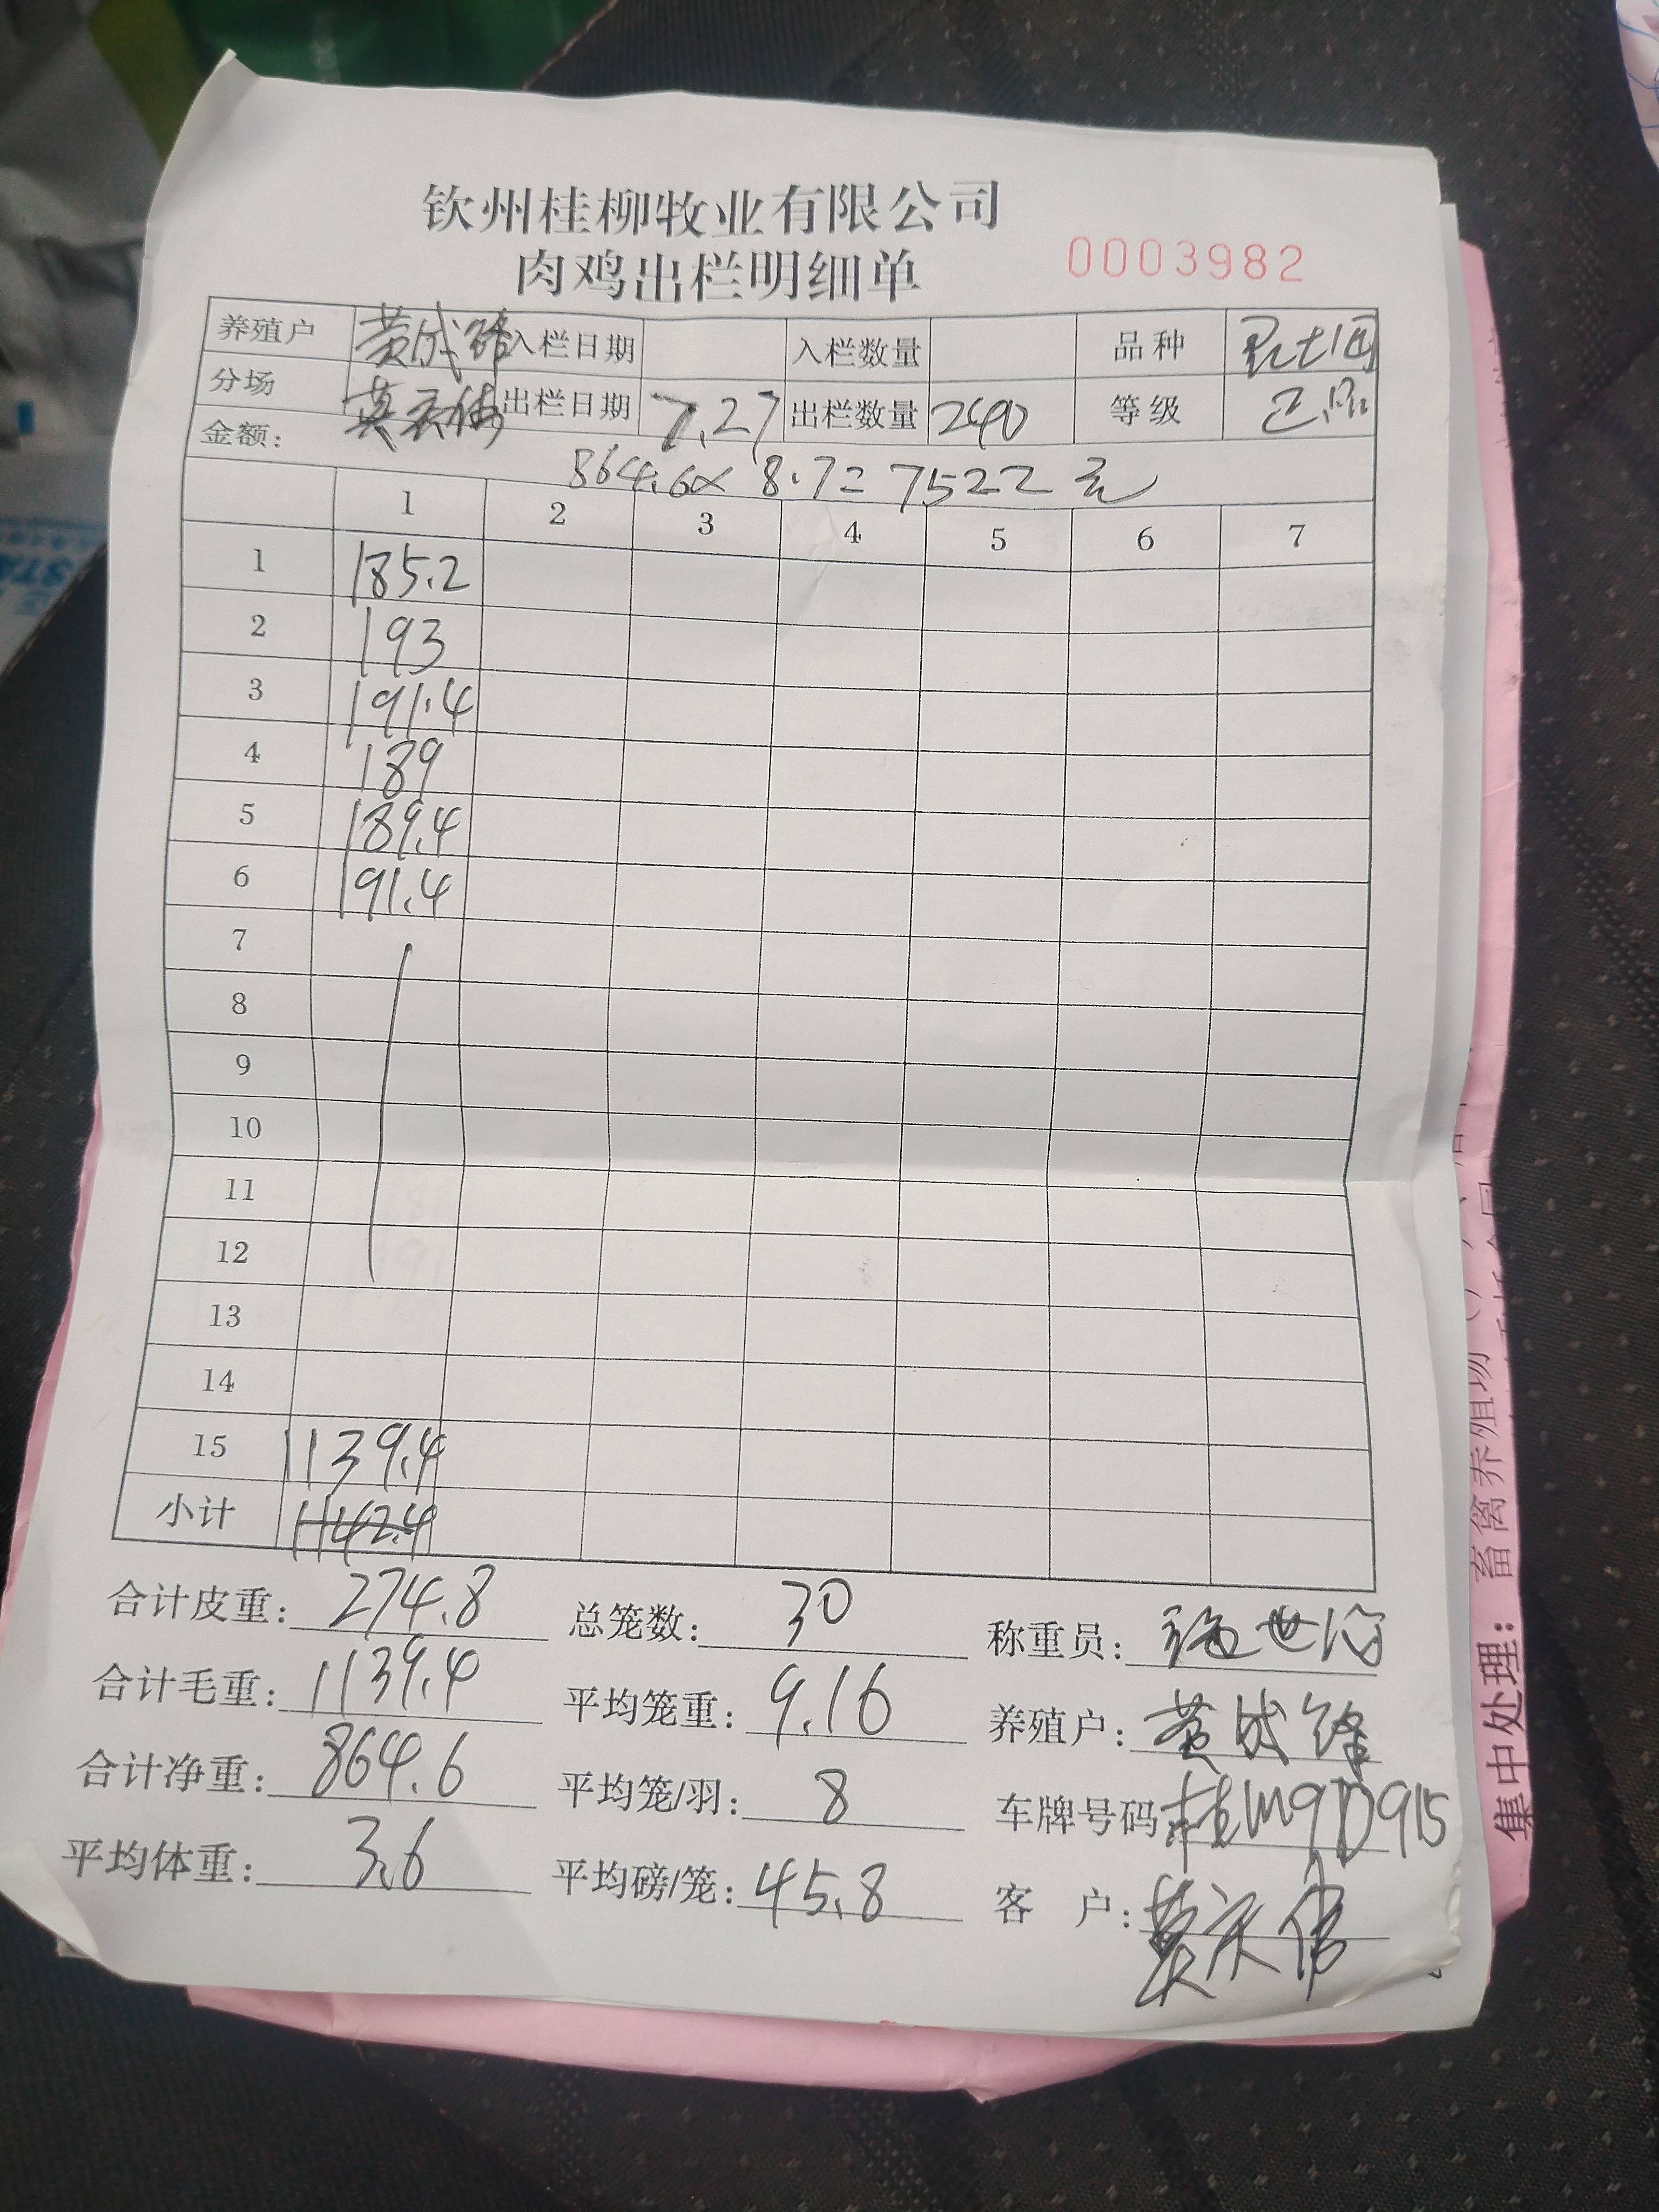 钦州桂柳牧业有限公司
肉鸡出栏明细单 0003982
养殖户 黄成锋 入栏日期 入栏数量 品种
分场 出栏日期 7.27 出栏数量 240 等级 正品
金额: 864.6×8.7=7522元
1 2 3 4 5 6 7
1 185.2
2 193
3 191.4
4 189
5 189.4
6 191.4
7
8
9
10
11
12
13
14
15 1139.4
小计 1142.4
合计皮重: 274.8 总笼数: 30 称重员:
合计毛重: 1139.4 平均笼重: 9.16 养殖户: 黄成锋
合计净重: 864.6 平均笼/羽: 8 车牌号码 桂M9D915
平均体重: 3.6 平均磅/笼: 45.8 客 户:
集中处理: 畜禽养殖场